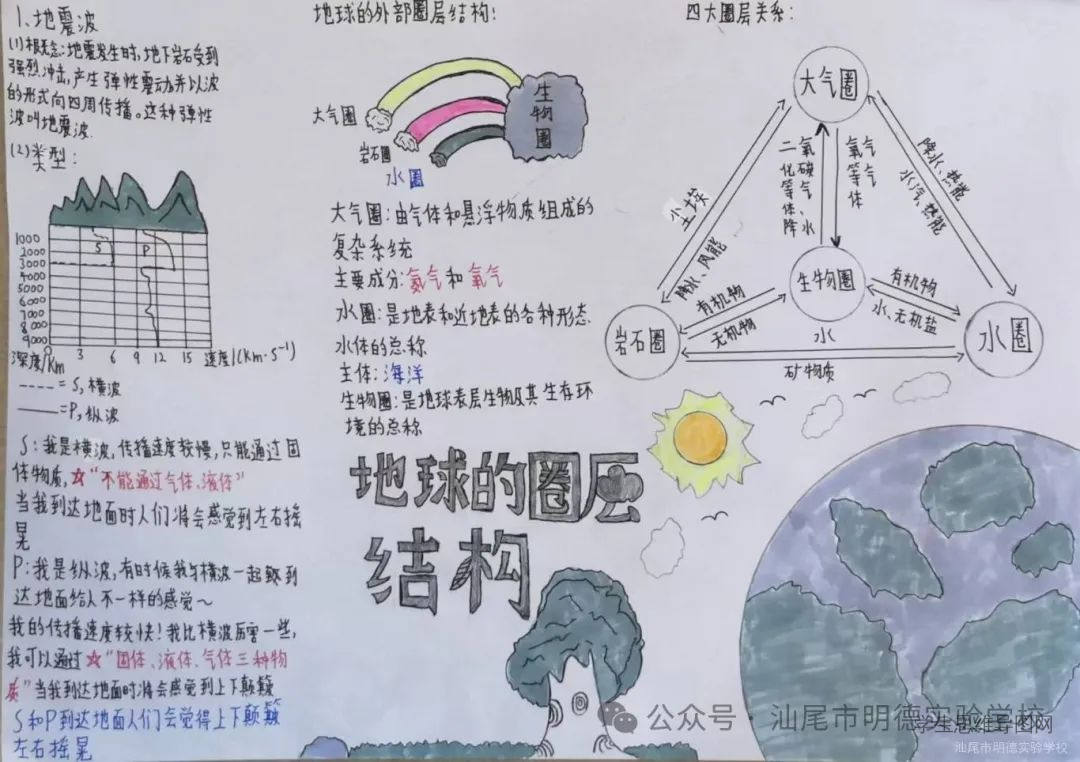 1、地震波
(1)概念:地震发生时,地下岩石受到
强烈冲击,产生弹性震动并以波
的形式向四周传播。这种弹性
波叫地震波.
(2)类型:
S
P
1000
2000
3000
4000
5000
6000
7000
8000
9000
0
3
6
9
12
15
深度/Km
速度/(Km·s⁻¹)
----=S,横波
——=P,纵波
S:我是横波,传播速度较慢,只能通过固
体物质,☆“不能通过气体、液体”
当我到达地面时人们将会感觉到左右摇
晃
P:我是纵波,有时候我与横波一起到
达地面给人不一样的感觉~
我的传播速度较快!我比横波厉害一些,
我可以通过☆“固体、液体、气体三种物
质”当我到达地面时将会感觉到上下颠簸
S和P到达地面人们会觉得上下颠簸
左右摇晃
地球的外部圈层结构:
大气圈
岩石圈
水圈
生物圈
大气圈:由气体和悬浮物质组成的
复杂系统
主要成分:氮气和氧气
水圈:是地表和近地表的各种形态
水体的总称
主体:海洋
生物圈:是地球表层生物及其生存环
境的总称
地球的圈层
结构
四大圈层关系:
大气圈
二氧化碳等气体、降水
氧气等气体
降水、热能
水汽、热能
尘埃
降水、风能
生物圈
有机物
无机物
有机物
水、无机盐
岩石圈
水
水圈
矿物质
公众号·汕尾市明德实验学校
学生思维导图网
汕尾市明德实验学校